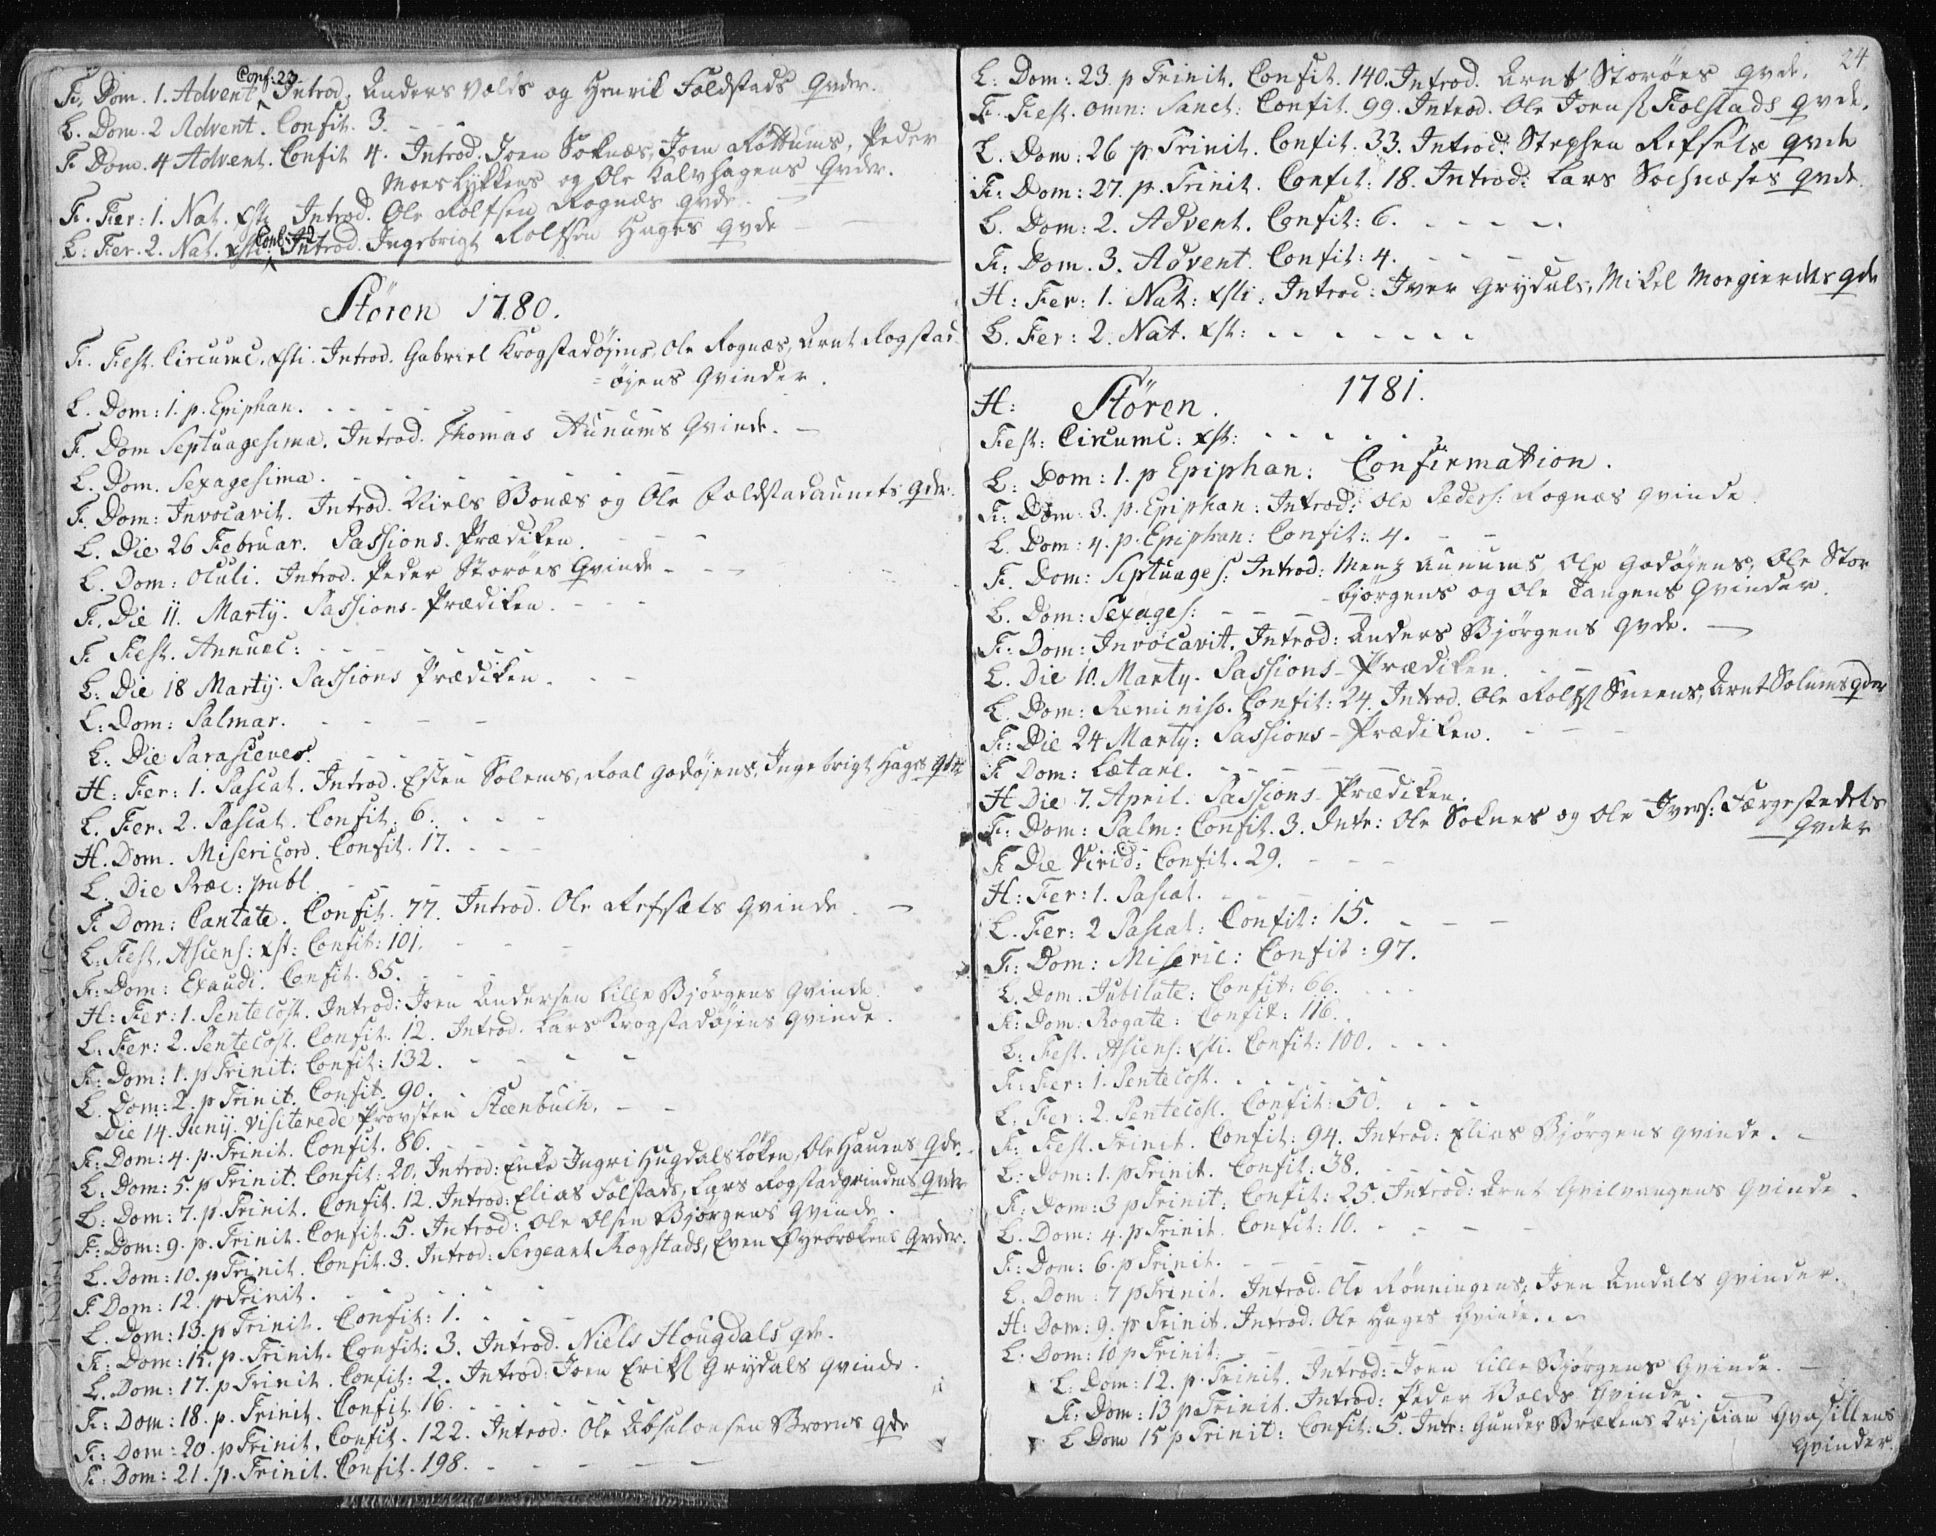 F. Dom. 1. Advent. Conf: 23. Introd. Anders Volds og Henrik Foldstads Qvder.
L. Dom. 2 Advent. Confit. 3. - - -
F. Dom. 4 Advent. Confit 4. Introd. Joen Soknæs, Joen Rottums, Peder
Moeslykkens og Ole Kalvhagens Qvder.
F. Fer: 1. Nat. Xsti Introd. Ole Rolfsen Rognæs qvde. -
L: Fer. 2. Nat. Xsti. Introd. Ingebrigt Rolfsen Hages qvde - -
Stören 1780.
F. Fest. Circumc. Xsti. Introd. Gabriel Krogstadøjens, Ole Rognæs, Arnt Rogstad
= øjens Qvinder.
L. Dom: 1. p. Epiphan. - - - -
F. Dom Septuagesima. Introd. Thomas Aunums Qvinde. -
L. Dom. Sexagesima. - - - - -
F. Dom: Invocavit. Introd. Niels Bonæs og Ole Foldstadaunets Qvdr.
L. Die 26 Februar. Passions-Prædiken. - - -
L. Dom: Oculi. Introd. Peder Storøes Qvinde - - -
F. Die 11. Martij. Passions-Prædiken. - - -
F. Fest. Annunc: - - - - - -
L: Die 18 Martij. Passions Prædiken. - -
L: Dom: Palmar. - - - -
L. Die Parasceves. - - - -
H: Fer: 1. Pascat. Introd. Esten Solems, Roal Godøjens, Ingebrigt Hages Qvdr
L. Fer. 2. Pascat. Confit. 6. - - -
H. Dom. Misericord. Confit. 17. - - -
L. Die Præc: publ. - - -
F. Dom: Cantate. Confit. 77. Introd. Ole Refsæts Qvinde. -
L. Fest. Ascens: Xst: Confit: 101. - - -
F: Dom: Exaudi. Confit. 85. - - - -
H: Fer: 1. Pentecost. Introd: Joen Andersen Lille Bjørgens Qvinde.
L: Fer: 2. Pentecost. Confit. 12. Introd. Lars Krogstadøjens Qvinde.
F: Dom: 1. p Trinit: Confit: 132. - - - -
L. Dom: 2. p Trinit. Confit. 90. -
Die 14. Junij. Visiterede Provsten Steenbuch. - -
F: Dom: 4. p. Trinit. Confit. 86. - - - -
L. Dom: 5. p Trinit. Confit: 20. Introd: Enke Ingri Hugdalsløken, Ole Haurns Qvdr.
L: Dom: 7. p. Trinit. Confit. 12. Introd: Elias Folstads, Lars Rogstadgrindens Qvder
F: Dom: 9. p. Trinit. Confit. 5. Introd: Ole Olsen Bjørgens Qvinde.
L. Dom: 10. p Trinit. Confit. 3. Introd: Sergeant Rogstads, Even Øyebrækens Qvder.
F. Dom: 12. p Trinit. - - - -
L. Dom: 13. p Trinit. Confit: 1. - - -
F: Dom: 15. p. Trinit. Confit: 3. Introd. Niels Hougdals qde.
L. Dom: 17. p Trinit. Confit: 2. Introd: Joen Eriks. Grydals Qvinde.
F: Dom: 18. p. Trinit. Confit. 16. - - - -
F: Dom: 20. p Trinit. Confit. 122. Introd. Ole Absalonsen Broens qde
F: Dom: 21. p. Trinit. Confit. 198. - - - -
24
L: Dom: 23. p Trinit. Confit. 140. Introd. Arnt Storøes qvde.
F. Fest. omn: Sanct: Confit. 99. Introd. Ole Joens. Folstads qvde.
L. Dom: 26 p Trinit. Confit. 33. Introd: Stephen Refsets qvde
F: Dom: 27. p. Trinit. Confit: 18. Introd: Lars Sochnæses qvde.
L. Dom: 2. Advent. Confit: 6. - - - -
F: Dom. 3. Advent. Confit: 4. - - - -
H: Fer: 1. Nat: Xsti: Introd: Iver Grydals, Mikel Moegierdes qde
L. Fer: 2. Nat. Xst: - - - - - - -
H: Stören. 1781.
Fest: Circumc: Xst: - - - - -
L: Dom: 1. p Epiphan: Confirmation.
F: Dom: 3. p. Epiphan: Introd: Ole Peders: Rognæs qvinde.
L. Dom: 4. p. Epiphan: Confit: 4. - -
F. Dom: Septuages: Introd: Menz Aunums, Ole Godøjens, Ole Stor
bjørgens og Ole Tangens Qvinder.
L. Dom: Sexages: - - - -
F: Dom: Invocavit. Introd: Anders Bjørgens Qvde. -
L. Die 10. Martij. Passions-Prædiken. - - -
L. Dom: Reminisc. Confit: 24. Introd. Ole Rolfs. Sneens, Arnt Solems qder
F: Die 24 Martij: Passions-Prædiken. - - -
F Dom: Lætare. - - - - -
H Die 7. April. Passions-Prædiken.
F: Dom: Palm: Confit. 3. Intr: Ole Soknes og Ole Ivers: Færgestedets
Qvder
F Die Virid: Confit. 29. - - -
H: Fer: 1. Pascat. - -
L. Fer: 2 Pascat: Confit: 15. - - -
F: Dom: Miseric: Confit: 97.
L. Dom. Jubilate: Confit: 66. - - -
F: Dom. Rogate: Confit: 116. -
L: Fest. Ascens: Xsti. Confit: 100. - - -
F: Fer: 1. Pentecost. - - - - -
L. Fer: 2. Pentecost. Confit: 50. - - -
F: Fest. Trinit. Confit: 94. Introd: Elias Bjørgens qvinde. -
L: Dom: 1. p Trinit. Confit: 38. - - - -
F: Dom: 3 p Trinit: Confit: 25. Introd: Arnt Qvilvangens Qvinde.
L. Dom: 4. p Trinit. Confit: 10. - - - -
F: Dom: 6. p Trinit. - - - -
L: Dom: 7 p Trinit. Introd. Ole Rønningens, Joen Amdals Qvinder.
H: Dom: 9. p Trinit. Introd: Ole Hages Qvinde. - -
L: Dom: 10 p Trinit: - - - - -
L: Dom: 12. p. Trinit. Introd: Joen Lille Bjørgens Qvinde. -
F: Dom: 13 p Trinit. Introd: Peder Volds Qvinde. - -
L Dom 15 p Trinit: Confit: 5. Intr: Gunder Brækens Cristian Qvasillens
Qvinder.